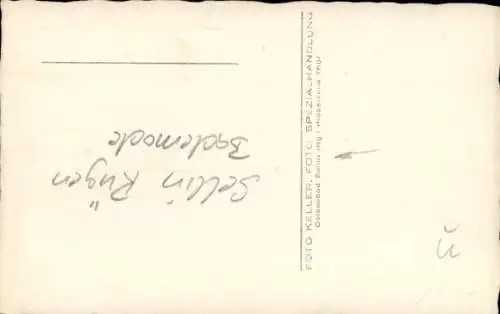 Sellin Rügen
Bademode
FOTO KELLER, FOTO SPEZIAL-HANDLUNG
Ostseebad